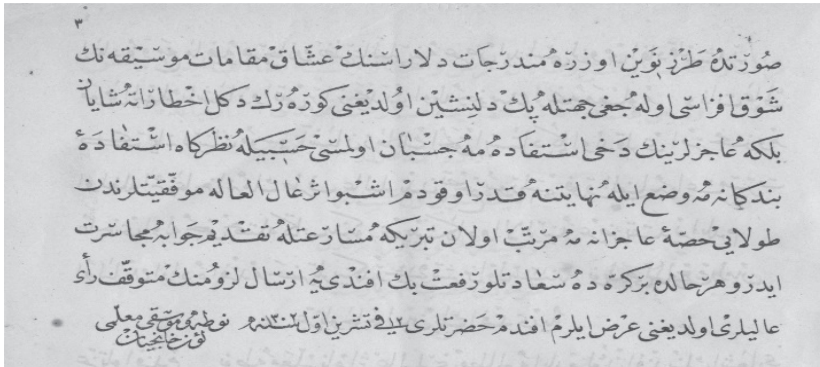 ٣
صورتده طرز نوين اوزره مندرجات دلاراسنك عشاق مقامات موسيقه نك
شوق افزاسى اوله جغى جهتله پك دلنشين اولديغنى كوره رك دكل اخطارانه شايان
بلكه عاجزلرينك دخى استفاده مه جسبان اولمسى حسبيله نظركاه استفادۀ
بندكانه مه وضع ايله نهايتنه قدر اوقودم اشبو اثر عال العاله موفقيتلرندن
طولايى حصۀ عاجزانه مه مرتب اولان تبريكه مسارعتله تقديم جوابه مجاسرت
ايدر و هر حالده بر كره ده سعادتلو رفعت بك افندى يه ارسال لزومنك متوقف رأى
عاليلرى اولديغنى عرض ايلرم افندم حضرتلرى فى ١٢ تشرين اول سنه ٣٠٢ نوطه و موسيقى معلمى